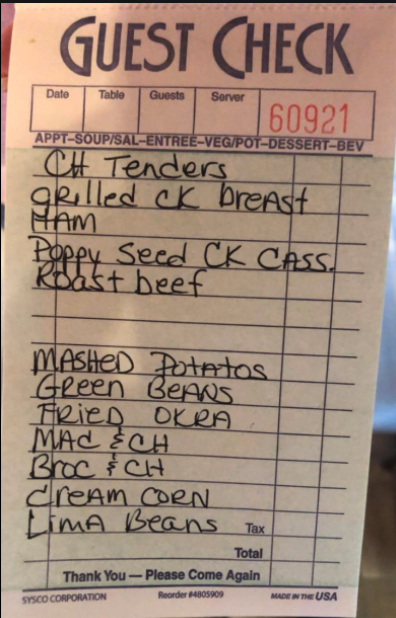 GUEST CHECK
Date Table Guests Server
60921
APPT–SOUP/SAL–ENTREE–VEG/POT–DESSERT–BEV
CH Tenders
grilled CK breast
HAM
Poppy Seed CK CASS.
Roast beef
MASHED Potatos
Green BEANS
FRIED OKRA
MAC & CH
Broc & CH
Cream CORN
LimA Beans Tax
Total
Thank You — Please Come Again
SYSCO CORPORATION Reorder #4805909 MADE IN THE USA